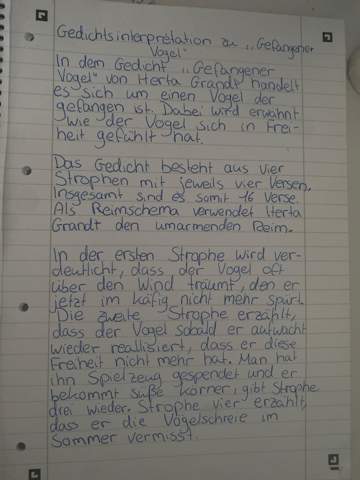 Gedichtsinterpretation zu „Gefangener
Vogel"
In dem Gedicht „Gefangener
Vogel" von Herta Grandt handelt
es sich um einen Vogel der
gefangen ist. Dabei wird erwähnt
wie der Vogel sich in Frei-
heit gefühlt hat.
Das Gedicht besteht aus vier
Strophen mit jeweils vier Versen.
Insgesamt sind es somit 16 Verse.
Als Reimschema verwendet Herta
Grandt den umarmenden Reim.
In der ersten Strophe wird ver-
deutlicht, dass der Vogel oft
über den Wind träumt, den er
jetzt im Käfig nicht mehr spürt.
Die zweite Strophe erzählt,
dass der Vogel sobald er aufwacht
wieder reallisiert, dass er diese
Freiheit nicht mehr hat. Man hat
ihn Spielzeug gespendet und er
bekommt süße Körner, gibt Strophe
drei wieder. Strophe vier erzählt,
dass er die Vögelschreie im
Sommer vermisst.